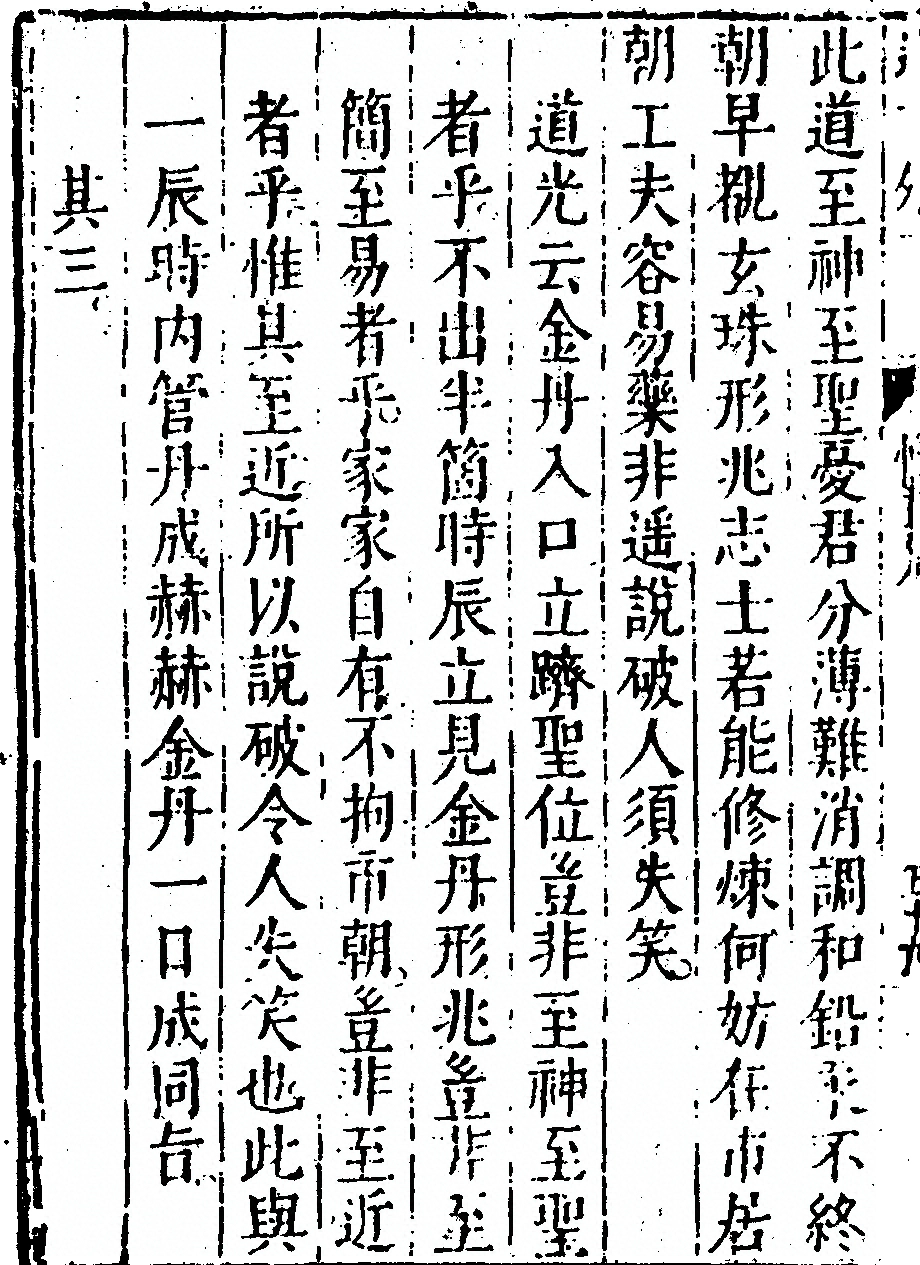 此道至神至聖憂君分薄難消調和鉛汞不終
朝早覩玄珠形兆志士若能修煉何妨在市居
朝工夫容易藥非遥說破人須失笑
道光云金丹入口立躋聖位豈非至神至聖
者乎不出半箇時辰立見金丹形兆豈非至
簡至易者乎家家自有不拘市朝豈非至近
者乎惟其至近所以說破令人失笑也此與
一辰時内管丹成赫赫金丹一日成同旨
其三